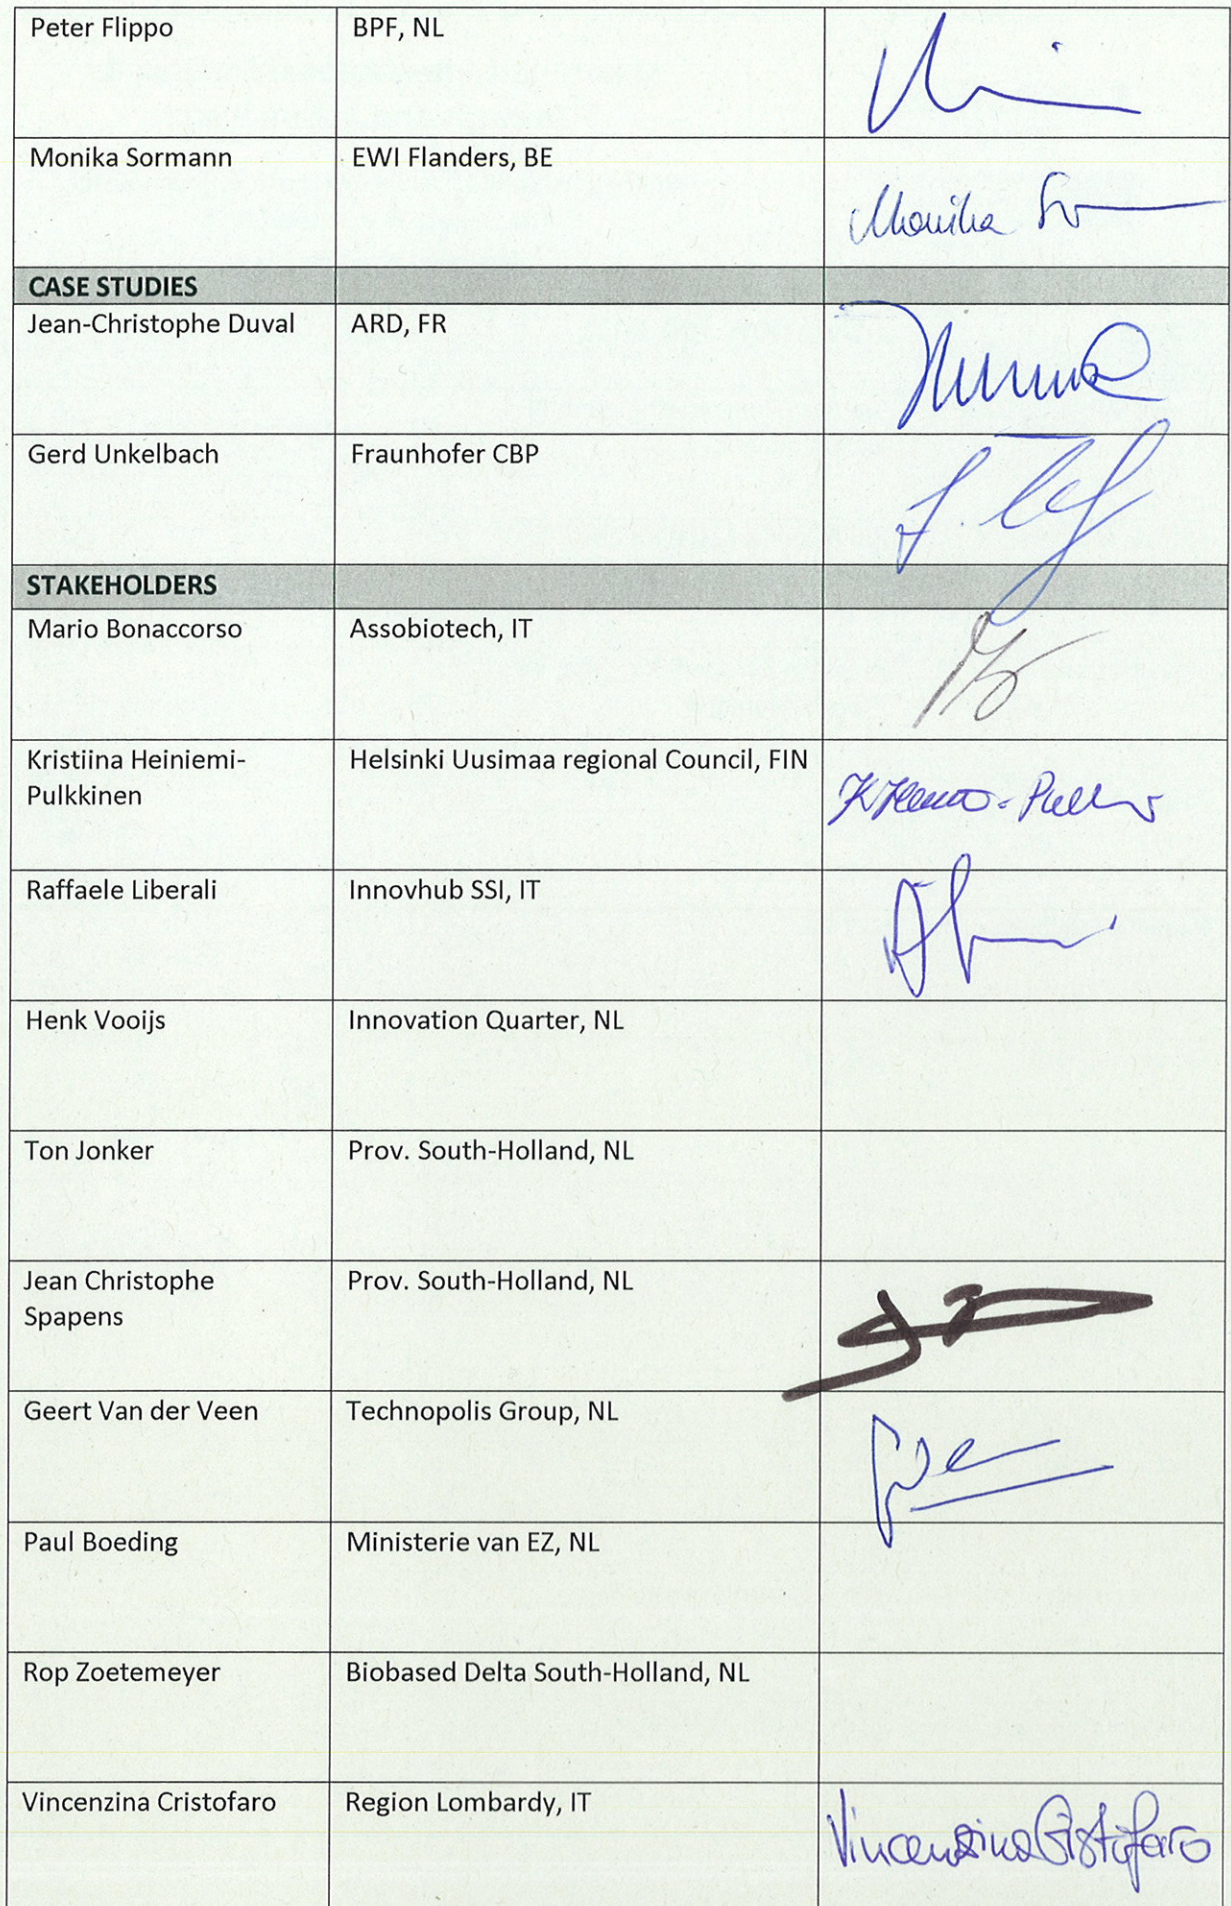 Peter Flippo BPF, NL
Monika Sormann EWI Flanders, BE
Monika
CASE STUDIES
Jean-Christophe Duval ARD, FR
Gerd Unkelbach Fraunhofer CBP
STAKEHOLDERS
Mario Bonaccorso Assobiotech, IT
Kristiina Heiniemi- Helsinki Uusimaa regional Council, FIN
Pulkkinen
Raffaele Liberali Innovhub SSI, IT
Henk Vooijs Innovation Quarter, NL
Ton Jonker Prov. South-Holland, NL
Jean Christophe Prov. South-Holland, NL
Spapens
Geert Van der Veen Technopolis Group, NL
Paul Boeding Ministerie van EZ, NL
Rop Zoetemeyer Biobased Delta South-Holland, NL
Vincenzina Cristofaro Region Lombardy, IT
Vincenzina Cristofaro